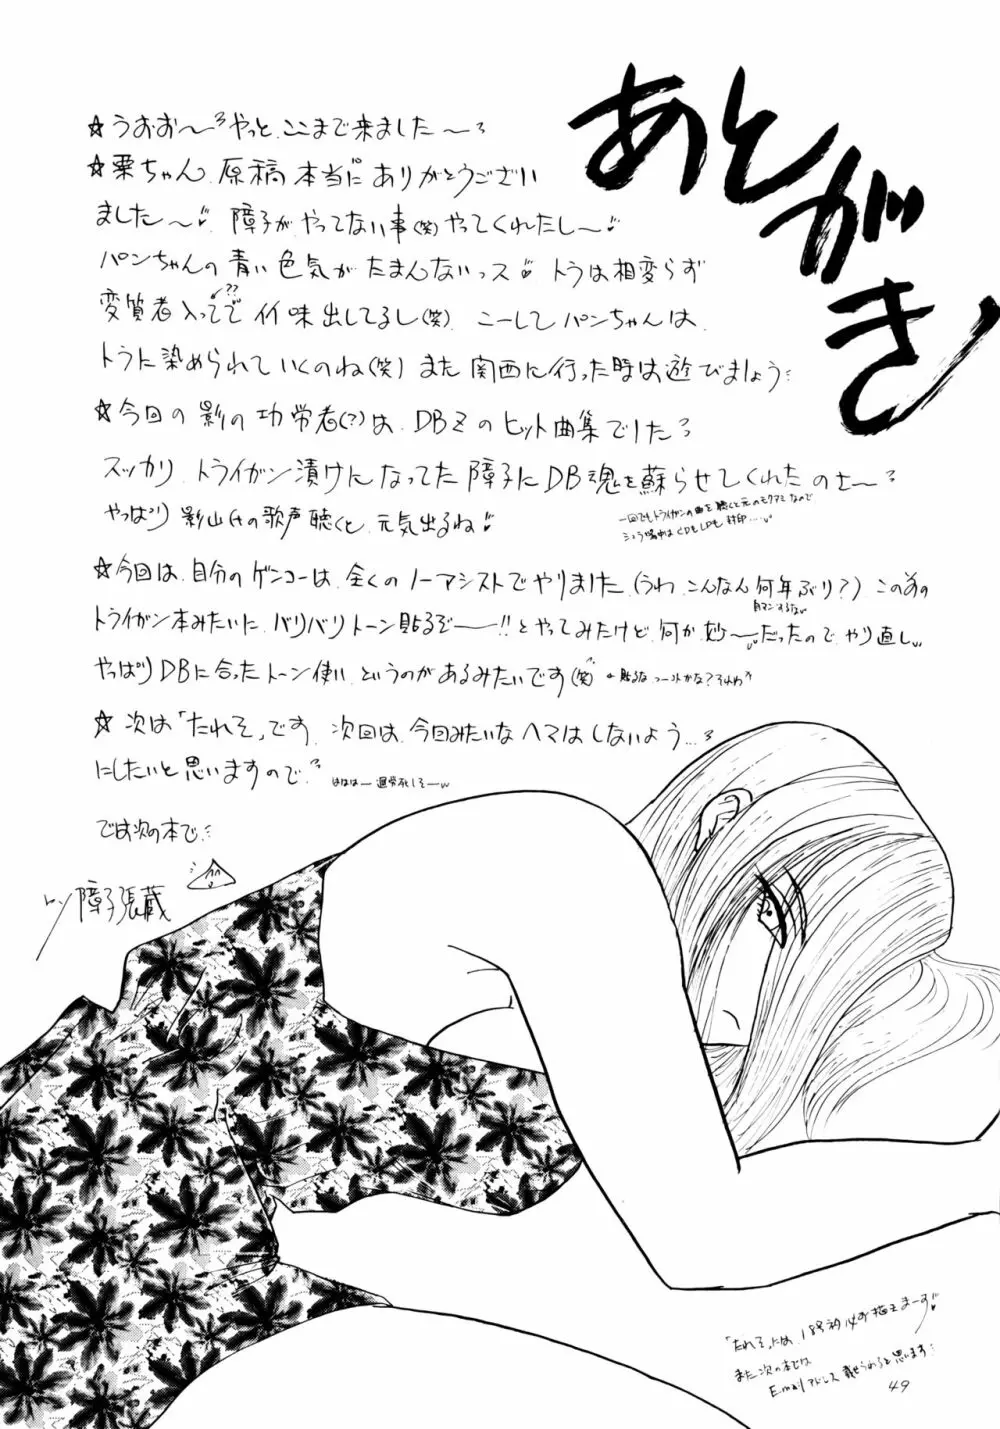 あとがき
☆うおお〜やっと、ここまで来ました〜
☆栗ちゃん、原稿本当にありがとうござい
ました〜。障子がやってない事(笑)やってくれたし〜
パンちゃんの青い色気がたまんないっス トラは相変らず
??
変質者入ってでイイ味出してるし(笑)。こーしてパンちゃんは、
トラに染められていくのね(笑)また関西に行った時は遊びましょう
☆今回の影の功労者(?)は、DBZのヒット曲集でした
スッカリ、トライガン漬けになってた障子にDB魂を蘇らせてくれたのさ〜
やっぱり影山さんの歌声聴くと、元気出るね
一回でもトライガンの曲を聴くと元のモクアミなので
シュラ場中はCDもLDも封印……
☆今回は、自分のゲンコーは、全くのノーアシストでやりました。(うわ、こんなん何年ぶり?)この前の
自マンするな
トライガン本みたいに、バリバリトーン貼るぞーー!!とやってみたけど、何か妙〜だったので、やり直し
やっぱりDBに合ったトーン使い、というのがあるみたいです(笑)
☆次は「たれそ」です。次回は、今回みたいなヘマはしないよう…
にしたいと思いますので。
はははー過労死しそー
では次の本で
障子張蔵
「たれそ」には、18号初め描きまーす
また次の本では
Emailアドレス載せられると思います
49